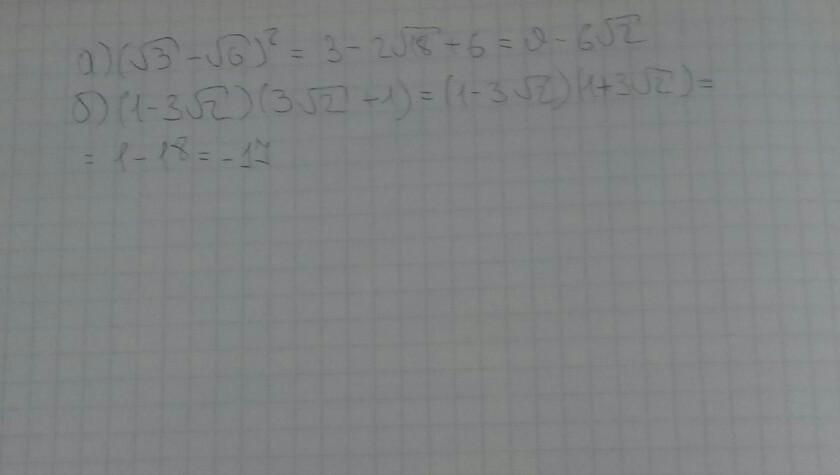 а) (√3 - √6)² = 3 - 2√18 + 6 = 9 - 6√2
б) (1 - 3√2)(3√2 + 1) = (1 - 3√2)(1 + 3√2) =
= 1 - 18 = -17